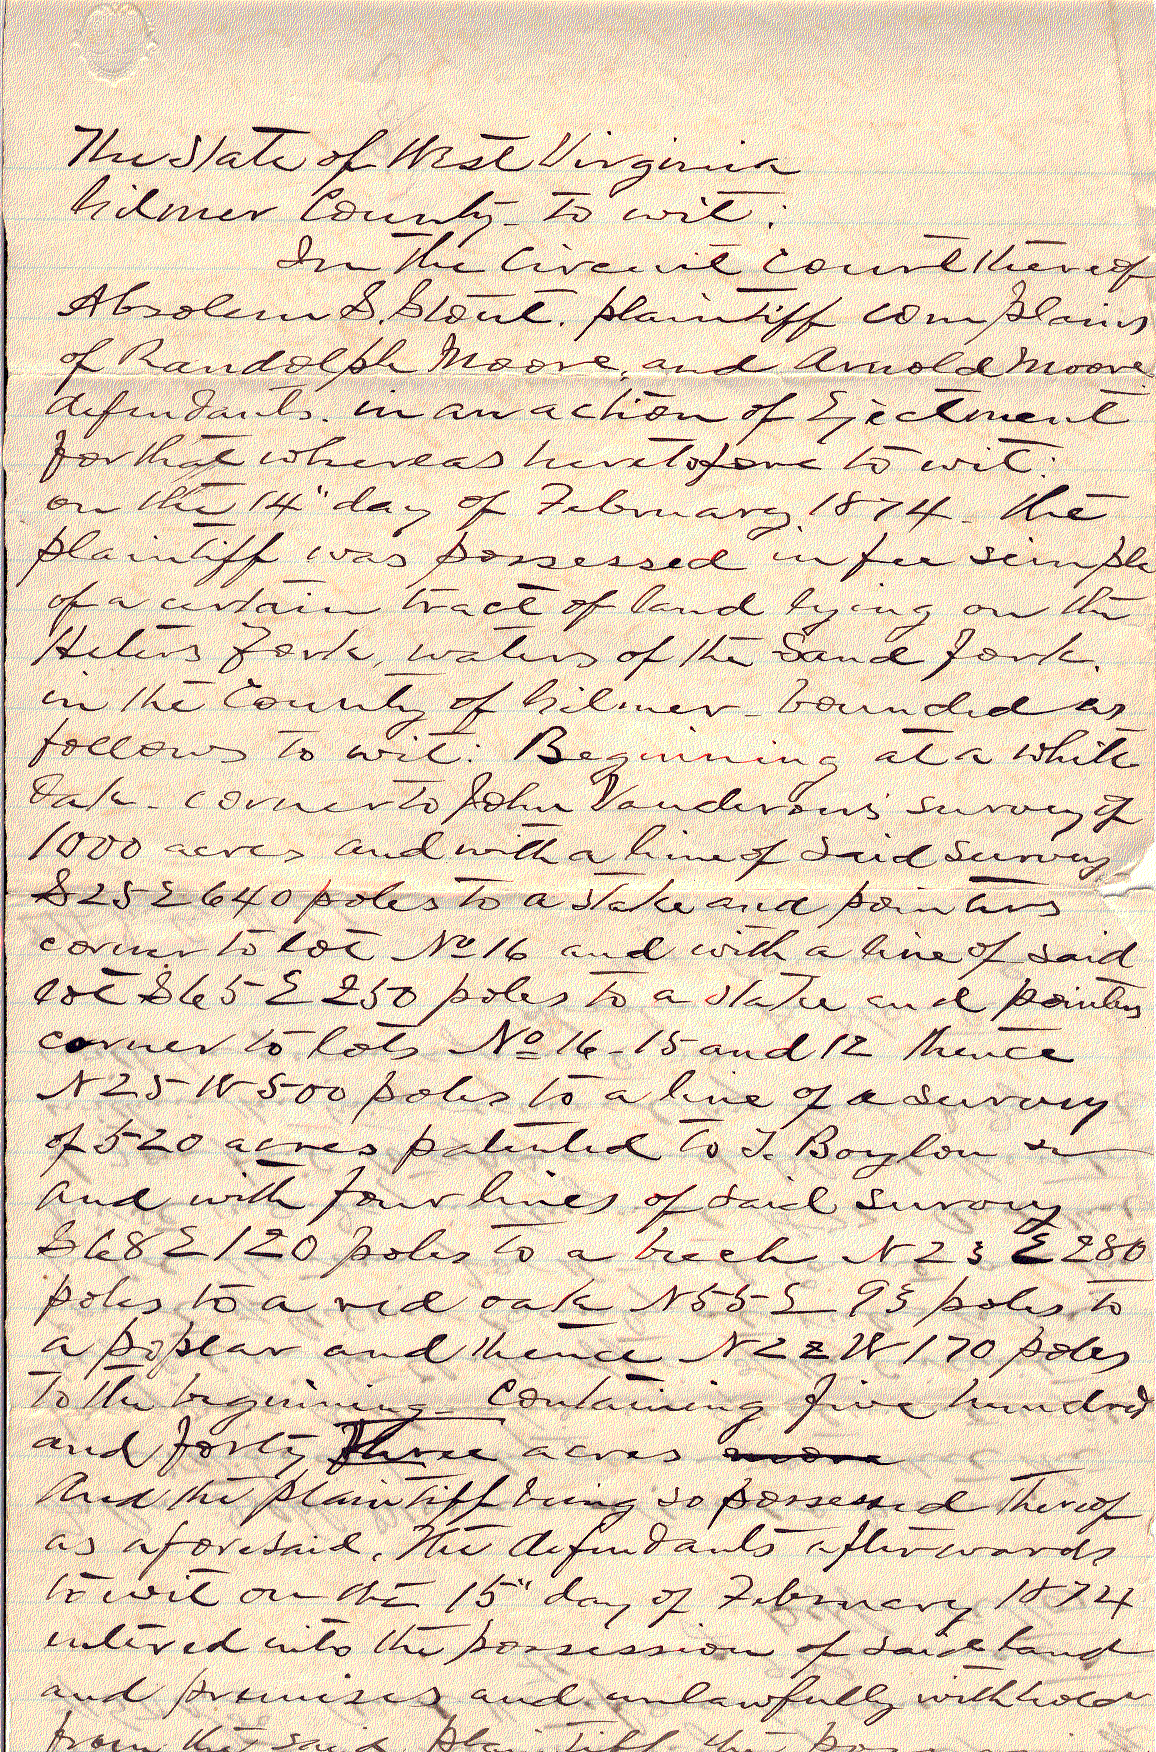 The State of West Virginia
Gilmer County- to wit:
In the Circuit Court thereof
Absolem S. Stout. plaintiff complains
of Randolph Moore, and Arnold Moore
defendants. in an action of Ejectment
for that whereas heretofore to wit:
on the 14" day of February 1874- the
plaintiff was possessed in fee simple
of a certain tract of land lying on the
Fork, waters of the Sand Fork.
in the County of Gilmer- bounded as
follows to wit: Beginning at a white
Oak- corner to John survey of
1000 acres and with a line of said survey
S 25 E 640 poles to a stake and pointers
corner to lot No 16 and with a line of said
lot S 65 E 250 poles to a stake and pointers
corner to lots No 16-15 and 12 thence
N 25 W 500 poles to a line of a survey
of 520 acres patented to T. Boylon
and with four lines of said survey
S 68 E 120 poles to a beech N 23 E 280
poles to a red oak N 55 E 93 poles to
a poplar and thence N 22 W 170 poles
to the beginning- Containing five hundred
and forty Three acres more
And the plaintiff being so possessed thereof
as aforesaid. The defendants afterwards
to wit on the 15" day of February 1874
entered into the possession of said land
and premises and unlawfully withhold
from the said plaintiff the